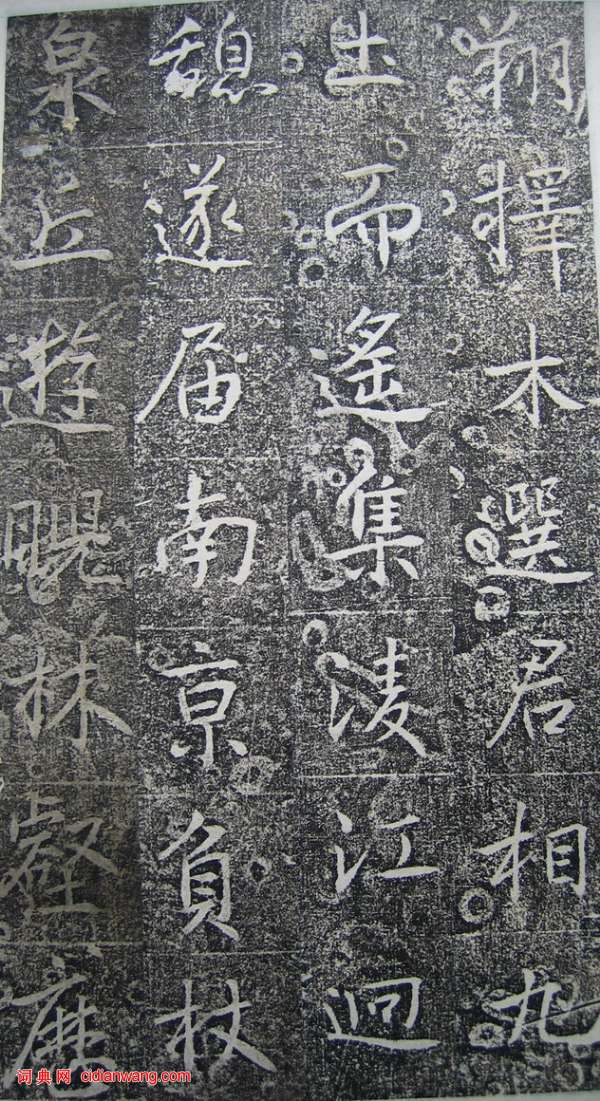 翔擇木選君相九
土而遙集淩江迥
憇遂届南京負杖
泉丘遊睨林壑歷
词典网 cidianwang.com